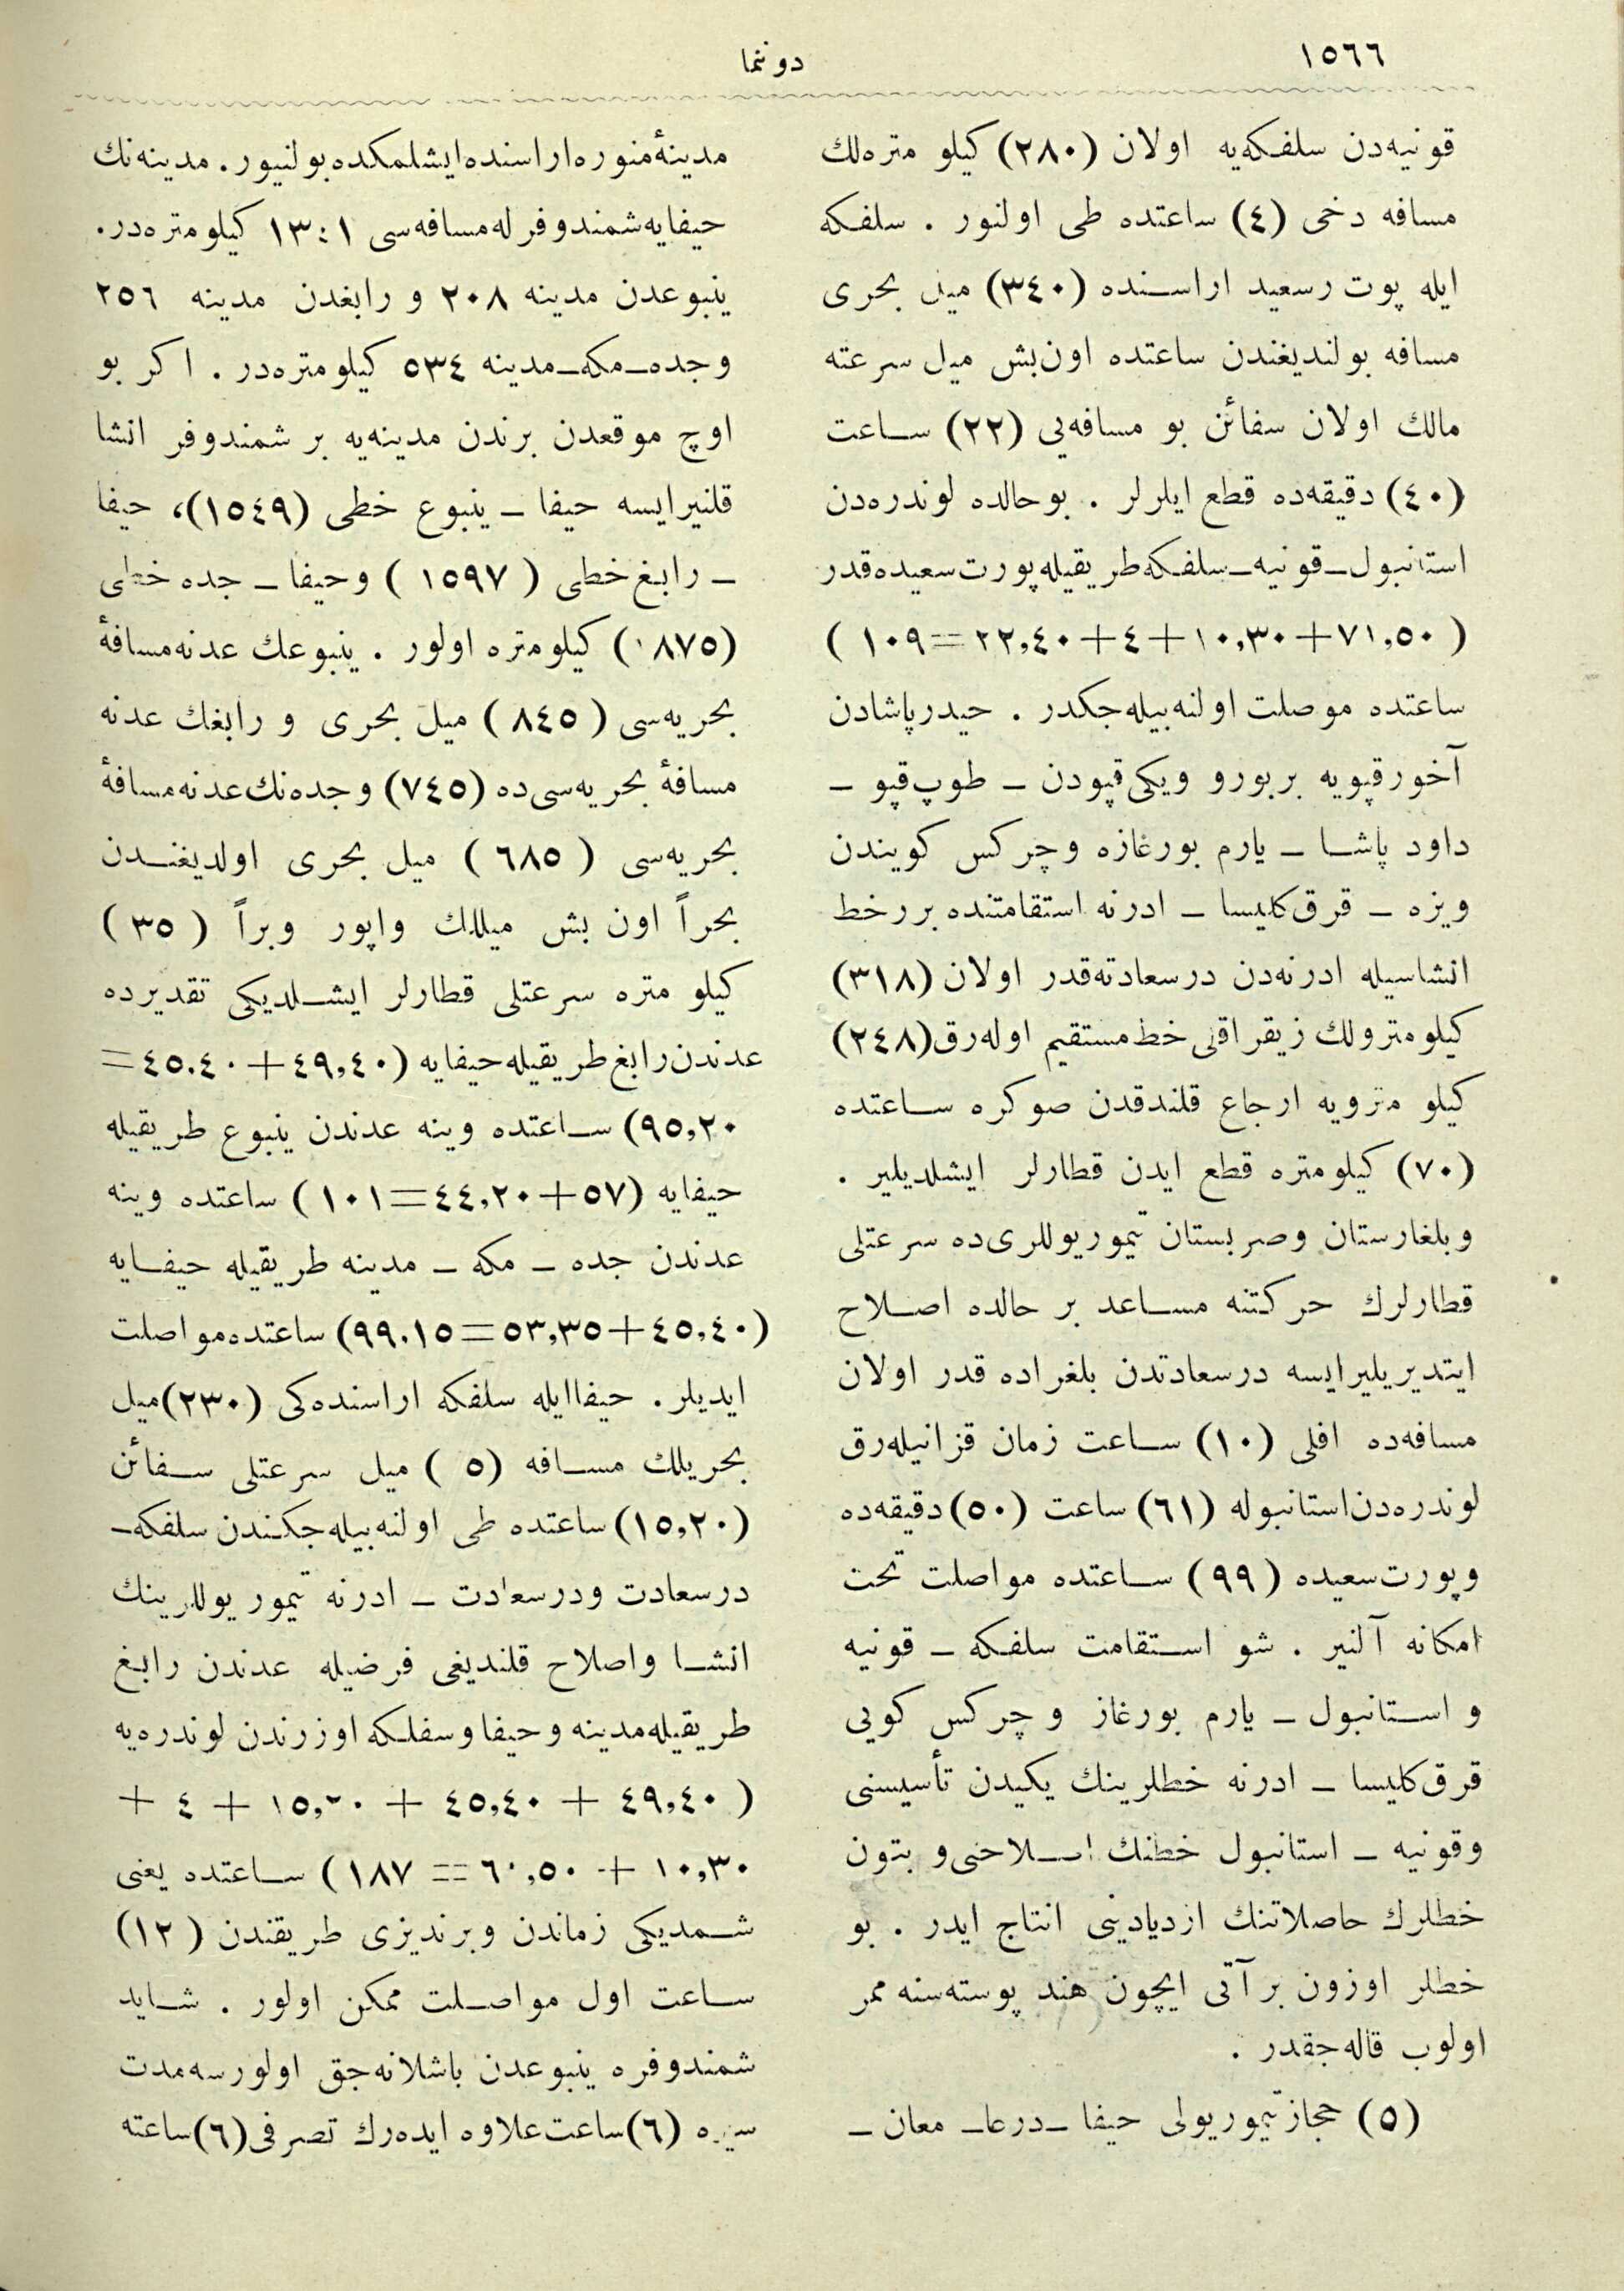 ١٥٦٦
دوننما
قونیه‌دن سلفکه‌یه اولان (٢٨٠) کیلو متره‌لك
مسافه دخی (٤) ساعتده طی اولنور . سلفکه
ایله پوت رسعید اراسنده (٣٤٠) میل بحری
مسافه بولندیغندن ساعتده اون‌بش میل سرعته
مالك اولان سفائن بو مسافه‌یی (٢٢) ساعت
(٤٠) دقیقه‌ده قطع ایلرلر . بوحالده لوندره‌دن
استانبول ـ قونیه ـ سلفکه طریقیله پورت سعیده قدر
(٧١,٥٠ + ١٠,٣٠ + ٤ + ٢٢,٤٠ = ١٠٩)
ساعتده موصلت اولنه‌بیله‌جکدر . حیدرپاشادن
آخورقپویه بربورو ویکی‌قپودن ـ طوپ‌قپو ـ
داود پاشا ـ یارم بورغازه وچرکس کویندن
ویزه ـ قرق‌کلیسا ـ ادرنه استقامتنده بررخط
انشاسیله ادرنه‌دن درسعادته‌قدر اولان (٣١٨)
کیلومترولك زیقزاقی خط مستقیم اوله‌رق (٢٤٨)
کیلو مترویه ارجاع قلندقدن صوکره ساعتده
(٧٠) کیلومتره قطع ایدن قطارلر ایشلدیلیر .
وبلغارستان وصربستان تیموریوللری‌ده سرعتلی
قطارلرك حرکتنه مساعد بر حالده اصلاح
ایتدیریلیرایسه درسعادتدن بلغراده قدر اولان
مسافه‌ده اقلی (١٠) ساعت زمان قزانیله‌رق
لوندره‌دن‌استانبوله (٦١) ساعت (٥٠) دقیقه‌ده
وپورت سعیده (٩٩) ساعتده مواصلت تحت
امکانه آلنیر . شو استقامت سلفکه ـ قونیه
و استانبول ـ یارم بورغاز و چرکس کویی
قرق‌کلیسا ـ ادرنه خطلرینك یکیدن تأسیسنی
وقونیه ـ استانبول خطنك اصلاحنی و بتون
خطلرك حاصلاتنك ازدیادینی انتاج ایدر . بو
خطلر اوزون بر آتی ایچون هند پوسته‌سنه ممر
اولوب قاله‌جقدر .
(٥) حجازتیموریولی حیفا ـ درعا ـ معان ـ
مدینهٔ منوره اراسنده ایشلمکده بولنیور . مدینه‌نك
حیفایه شمندوفرله مسافه‌سی ١٣٤١ کیلومتره‌در.
ینبوعدن مدینه ٢٠٨ و رابغدن مدینه ٢٥٦
وجده ـ مکه ـ مدینه ٥٣٤ کیلومتره‌در . اکر بو
اوچ موقعدن برندن مدینه‌یه بر شمندوفر انشا
قلنیرایسه حیفا ـ ینبوع خطی (١٥٤٩)، حیفا
ـ رابغ خطی (١٥٩٧) وحیفا ـ جده خطی
(١٨٧٥) کیلومتره اولور . ینبوعك عدنه مسافهٔ
بحریه‌سی (٨٤٥) میل بحری و رابغك عدنه
مسافهٔ بحریه‌سی‌ده (٧٤٥) وجده‌نك عدنه مسافهٔ
بحریه‌سی (٦٨٥) میل بحری اولدیغندن
بحراً اون بش میللك واپور وبراً (٣٥)
کیلو متره سرعتلی قطارلر ایشلدیکی تقدیرده
عدندن رابغ طریقیله حیفایه (٤٩,٤٠ + ٤٥,٤٠ =
٩٥,٢٠) ساعتده وینه عدندن ینبوع طریقیله
حیفایه (٥٧ + ٤٤,٢٠ = ١٠١) ساعتده وینه
عدندن جده ـ مکه ـ مدینه طریقیله حیفایه
(٤٥,٤٠ + ٥٣,٣٥ = ٩٩,١٥) ساعتده مواصلت
ایدیلر. حیفاایله سلفکه اراسنده‌کی (٢٣٠) میل
بحریلك مسافه (٥ ) میل سرعتلی سفائن
(١٥,٢٠) ساعتده طی اولنه‌بیله‌جکندن سلفکه ـ
درسعادت ودرسعادت ـ ادرنه تیمور یوللرینك
انشا واصلاح قلندیغی فرضیله عدندن رابغ
طریقیله مدینه وحیفا وسفلکه اوزرندن لوندره‌یه
(٤٩,٤٠ + ٤٥,٤٠ + ١٥,٢٠ + ٤ +
١٠,٣٠ + ٦٠,٥٠ = ١٨٧) ساعتده یعنی
شمدیکی زماندن وبرندیزی طریقندن (١٢)
ساعت اول مواصلت ممکن اولور . شاید
شمندوفره ینبوعدن باشلانه‌جق اولورسه مدت
سیره (٦) ساعت علاوه ایده‌رك تصرفی (٦) ساعته